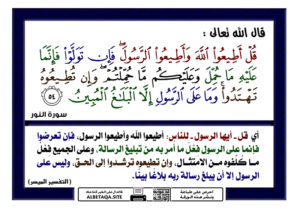 قال الله تعالى :
قُلْ أَطِيعُوا۟ ٱللَّهَ وَأَطِيعُوا۟ ٱلرَّسُولَ ۖ فَإِن تَوَلَّوْا۟ فَإِنَّمَا
عَلَيْهِ مَا حُمِّلَ وَعَلَيْكُم مَّا حُمِّلْتُمْ ۖ وَإِن تُطِيعُوهُ
تَهْتَدُوا۟ ۚ وَمَا عَلَى ٱلرَّسُولِ إِلَّا ٱلْبَلَٰغُ ٱلْمُبِينُ ٥٤
سورة النور
أي قل -أيها الرسول- للناس: أطيعوا الله وأطيعوا الرسول، فإن تعرضوا
فإنما على الرسول فعل ما أمر به من تبليغ الرسالة، وعلى الجميع فعل
ما كلفوه من الامتثال، وإن تطيعوه ترشدوا إلى الحق، وليس على
الرسول إلا أن يبلغ رسالة ربه بلاغًا بينًا.
(التفسير الميسر)
ALBETAQA.SITE
احرص على طباعة
ونشر هذه الورقة